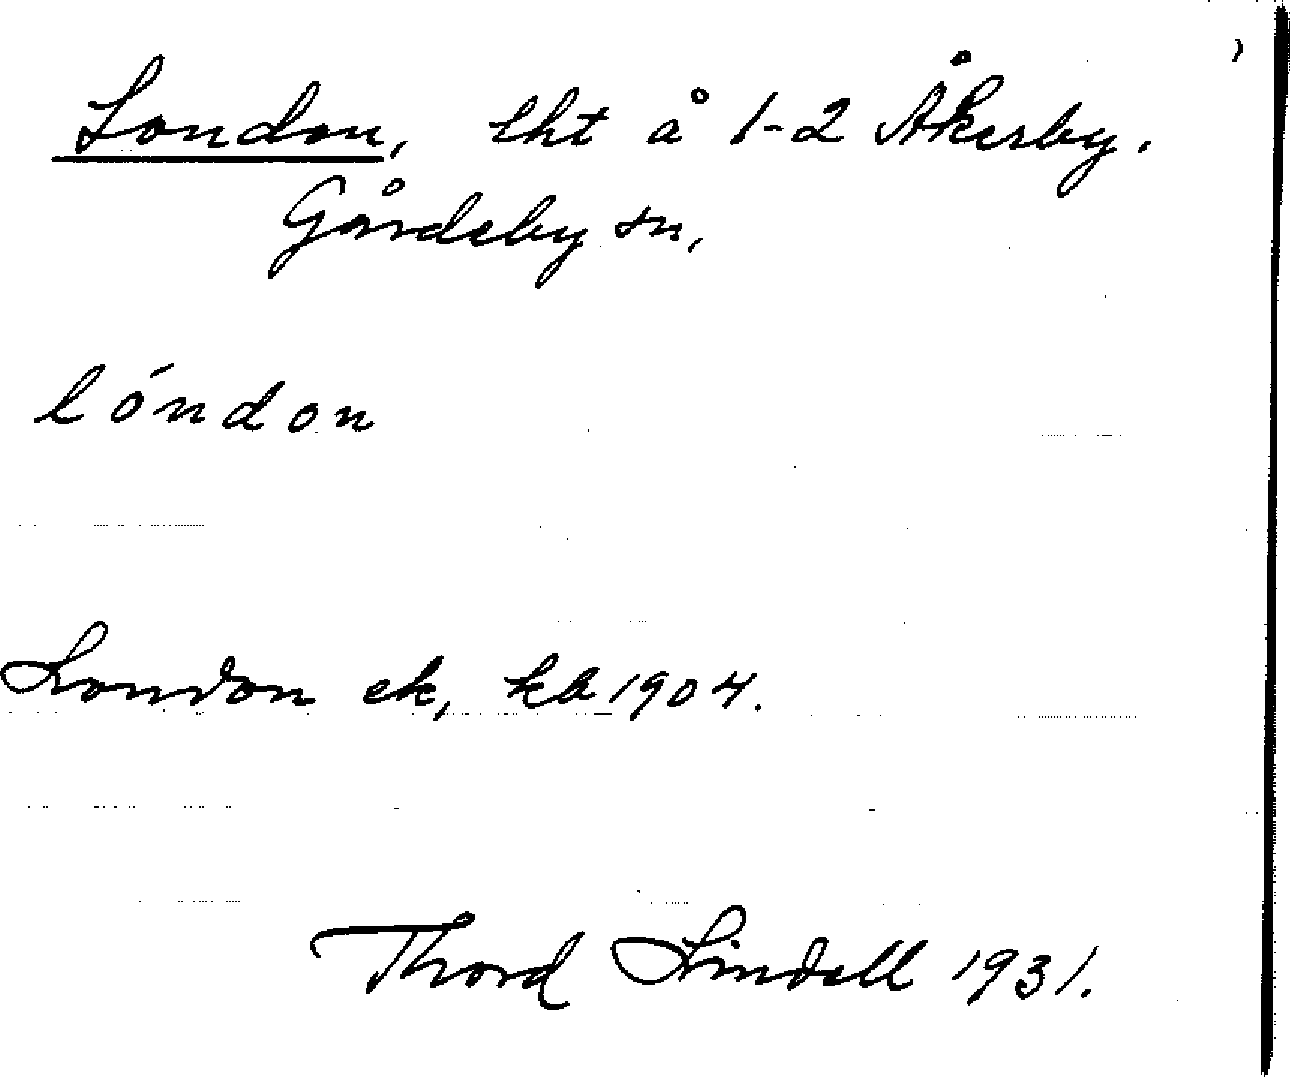 London, lht å 1-2 Åkerby.
Gårdeby sn,
lóndon
London ek, ka 1904.
Thord Lindell 1931.